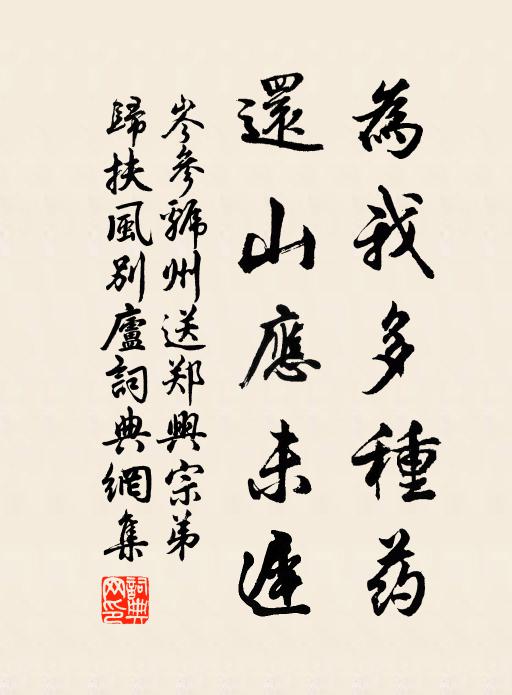 為我多種药
還山應未遲
岑參虢州送郑興宗弟
歸扶風別廬詞典網集
詞典网印